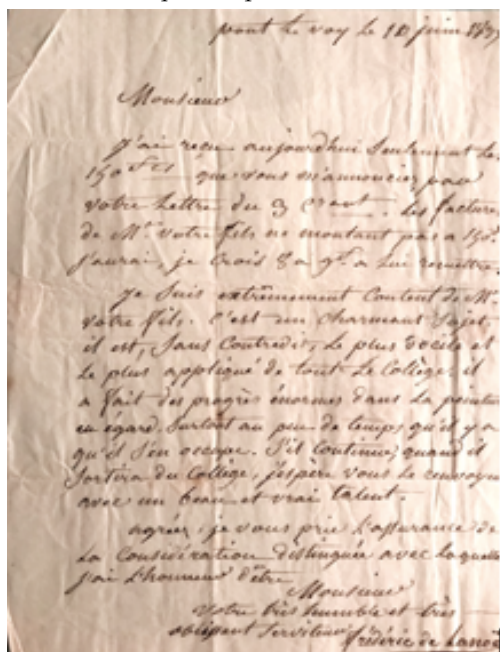 pont le voy le 10 juin
Monsieur
J'ai reçu aujourdhui Seulement les
150 fcs que vous m'annonciez par
votre Lettre du 3 crant. Les facture
de Mr votre fils ne montant pas a 150.
J'aurai, je Crois 8 a 9f. a Lui remettre.
Je Suis extrêmement Content de Mr
votre fils. C'est un Charmant Sujet,
il est, Sans Contredit, Le plus docile et
Le plus appliqué de tout Le Collège, il
a fait des progrès énormes dans La peinture
eu égard Surtout au peu de temps qu'il y a
qu'il S'en occupe. S'il Continue, quand il
Sortira du College, j'espère vous Le renvoyer
avec un beau et vrai talent.
agréez, je vous prie L'assurance de
La Considération distinguée avec Laquelle
j'ai L'honneur d'être
Monsieur
votre très humble et très
obligeant Serviteur
frédéric de